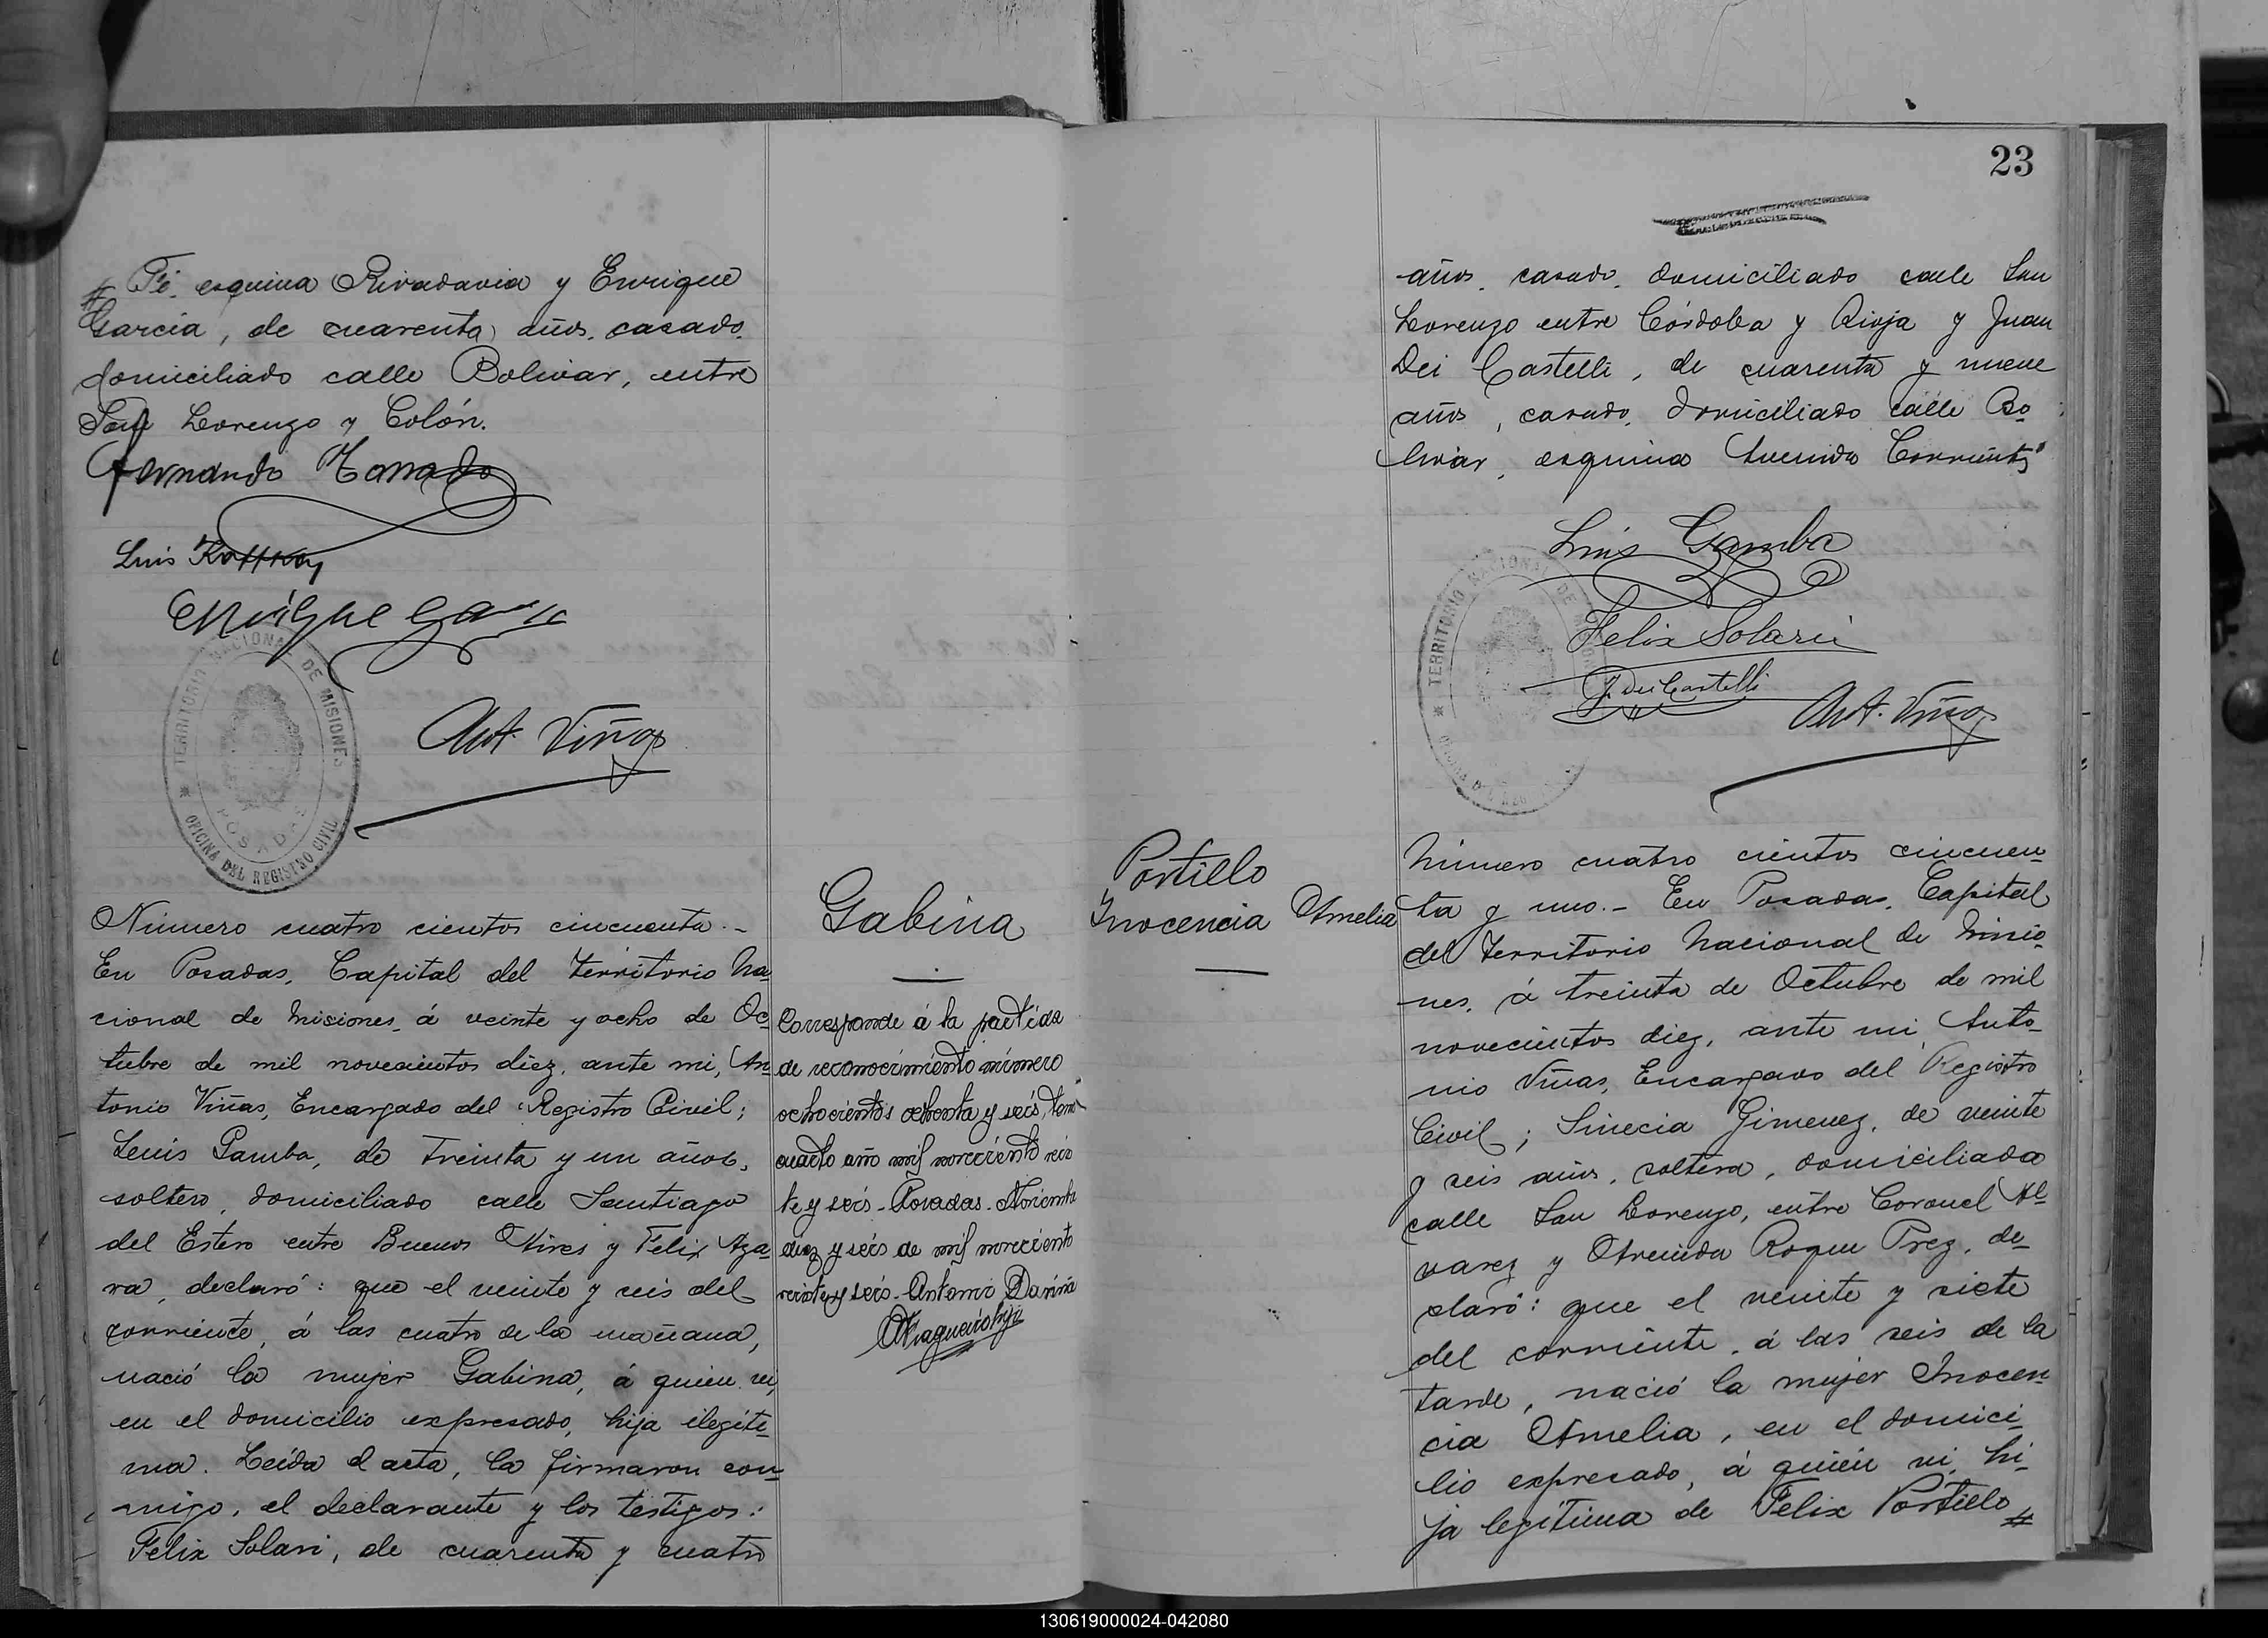 Fé, esquina Rivadavia y Enrique
Garcia, de cuarenta años, casado,
domiciliado calle Bolivar, entre
San Lorenzo y Colón.
Fernando
Luis
Enrique Garcia
Ant. Viñas
TERRITORIO NACIONAL DE MISIONES
POSADAS
OFICINA DEL REGISTRO CIVIL
Número cuatro cientos cincuenta.-
En Posadas, Capital del Territorio Na
cional de Misiones, á veinte y ocho de Oc
tubre de mil novecientos diez, ante mi, An
tonio Viñas, Encargado del Registro Civil;
Luis Gamba, de treinta y un años,
soltero, domiciliado calle Santiago
del Estero entre Buenos Aires y Felix Aza
ra, declaró: que el veinte y seis del
corriente, á las cuatro de la mañana,
nació la mujer Gabina, á quien vi,
en el domicilio expresado, hija ilegíti
ma. Leída el acta, la firmaron con
migo, el declarante y los testigos:
Felix Solari, de cuarenta y cuatro
Gabina
Corresponde á la partida
de reconocimiento número
ochocientos ochenta y seis, tomo
cuarto año mil novecientos vein
te y seis - Posadas. Noviembre
diez y seis de mil novecientos
veinte y seis - Antonio
23
años, casado, domiciliado calle San
Lorenzo entre Córdoba y Rioja y Juan
Dei Castelli, de cuarenta y nueve
años, casado, domiciliado calle Bo
livar, esquina Avenida Corrientes
Luis Gamba
Felix Solari
J. Dei Castelli
Ant. Viñas
TERRITORIO NACIONAL DE
Portillo
Inocencia Amelia
Número cuatro cientos cincuen
ta y uno.- En Posadas, Capital
del Territorio Nacional de Misio
nes, á treinta de Octubre de mil
novecientos diez, ante mi, Anto
nio Viñas, Encargado del Registro
Civil; Sinecia Gimenez, de veinte
y seis años, soltera, domiciliada
calle San Lorenzo, entre Coronel Al
varez y Avenida Roque Prez, de
claró: que el veinte y siete
del corriente, á las seis de la
tarde, nació la mujer Inocen
cia Amelia, en el domici
lio expresado, á quien vi, hi
ja legítima de Felix Portillo #
130619000024-042080